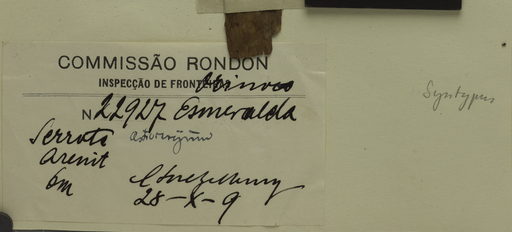 COMMISSÃO RONDON
INSPECÇÃO DE FRONTEI
N 22927 Esmeralda
Serrote
Arenit
6m
28-X-9
Syntypus